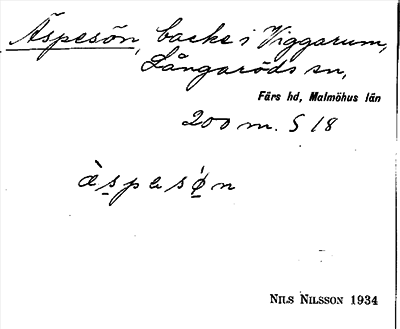 Äspesön, backe i Viggarum,
Långaröds sn,
Färs hd, Malmöhus län
200 m. S 18
àspesøn
NILS NILSSON 1934